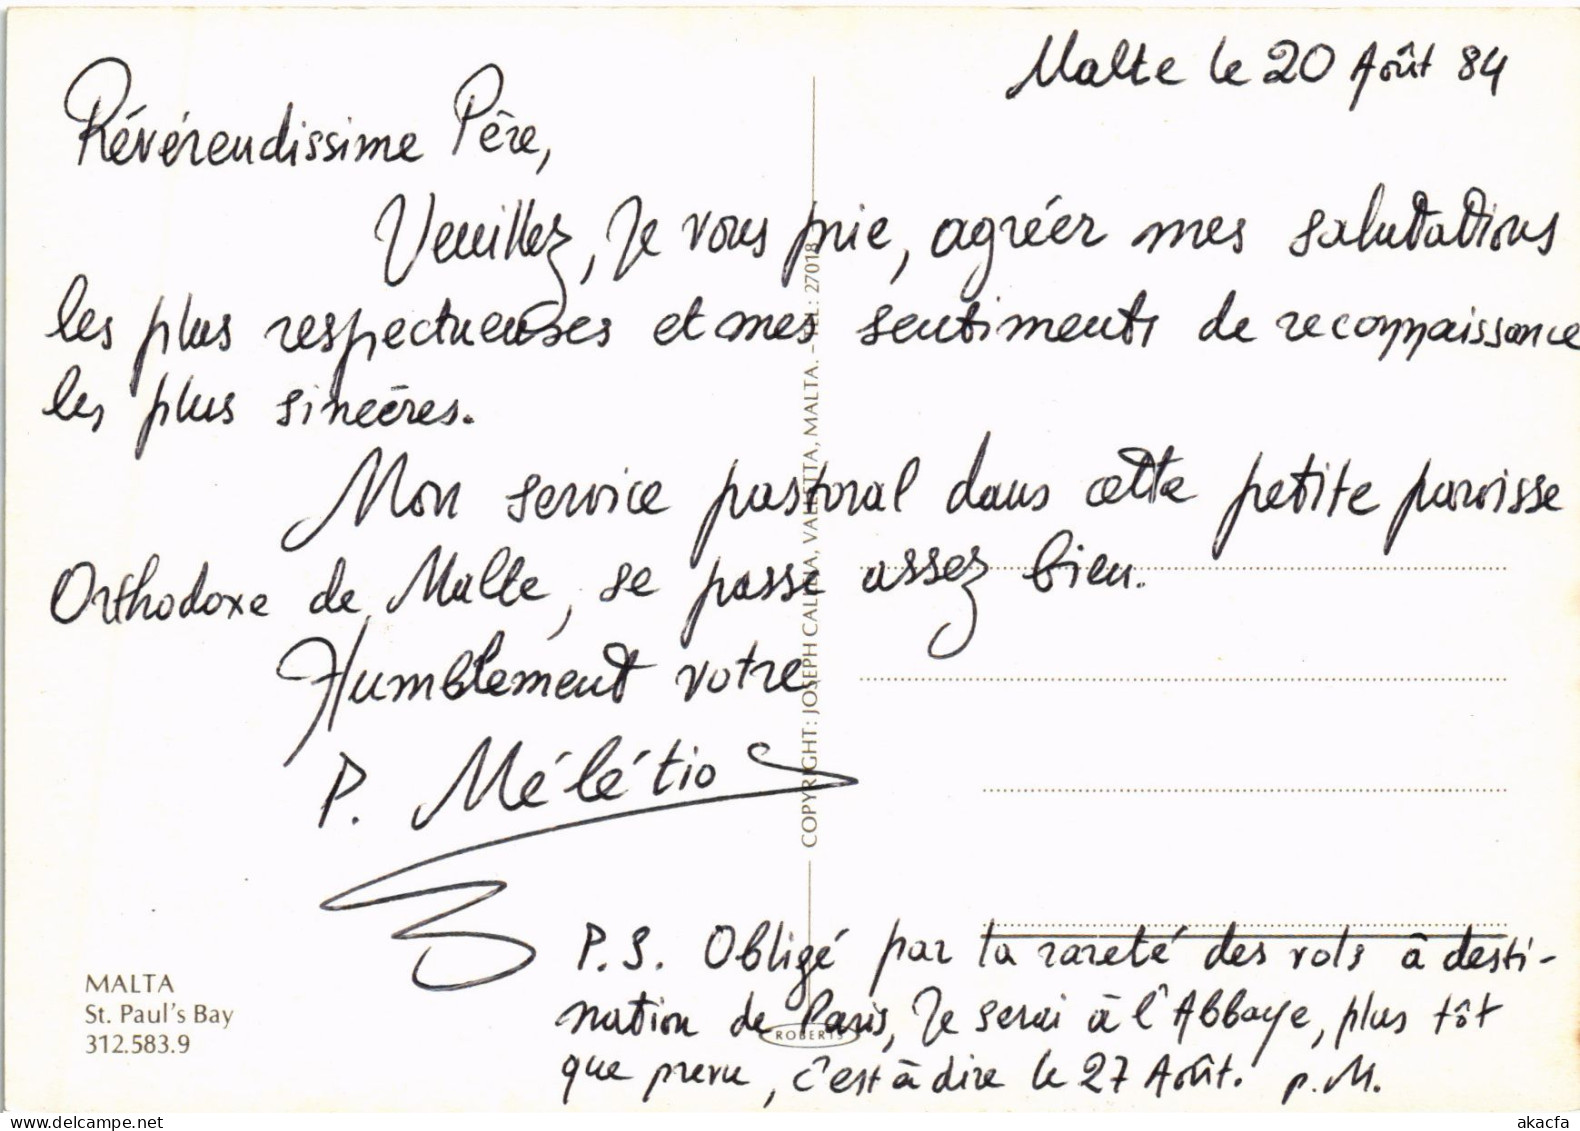 Malte le 20 Août 84
Révérendissime Père,
Veuillez, je vous prie, agréer mes salutations
les plus respectueuses et mes sentiments de reconnaissance
les plus sincères.
Mon service pastoral dans cette petite paroisse
Orthodoxe de Malte, se passe assez bien.
Humblement votre
P. Mélétios
P.S. Obligé par la rareté des vols à desti-
nation de Paris, je serai à l'Abbaye, plus tôt
que prevu, c'est à dire le 27 Août. p.M.
MALTA
St. Paul's Bay
312.583.9
COPYRIGHT: JOSEPH CALLEJA, VALLETTA, MALTA. - TEL: 27018
ROBERTS
www.delcampe.net
akacfa